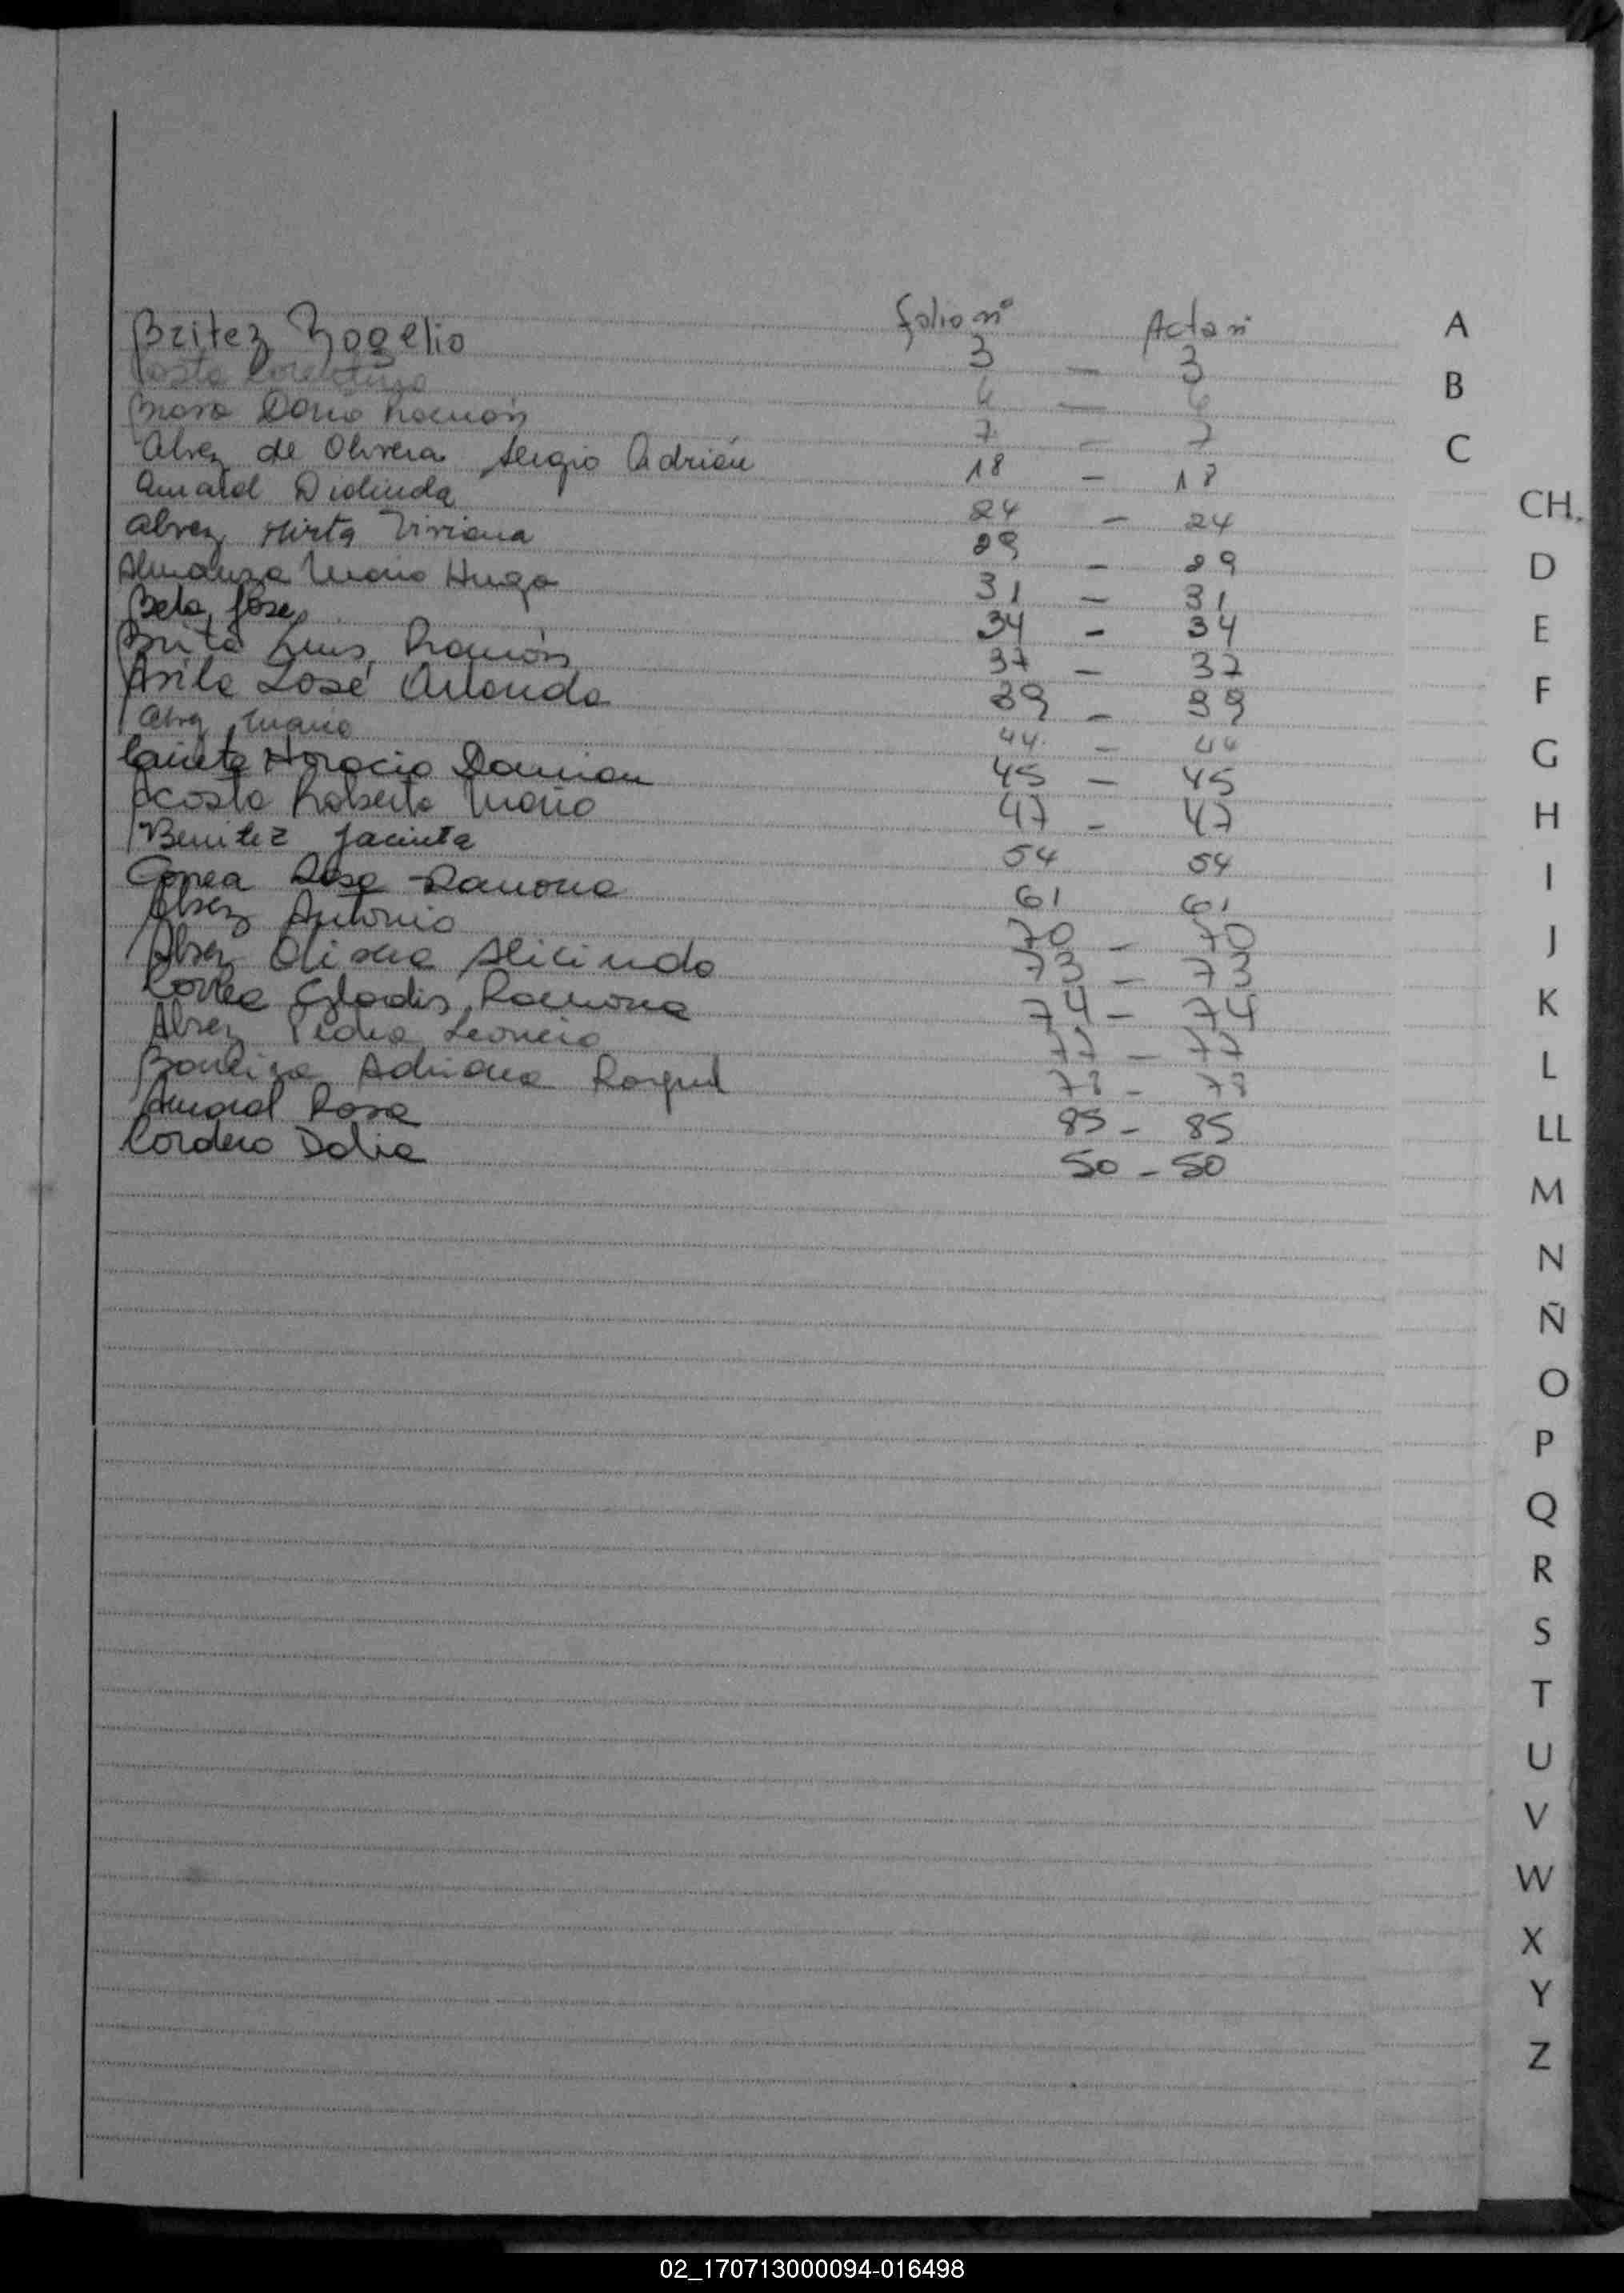 folio nº Acta nº
Britez Rogelio 3 3
Costa 4 — 6
Ramón 7 — 7
Alvez de Olivera Sergio Adrián 18 — 18
Amaral Diolinda 24 — 24
Alvez Mirta Viviana 29 — 29
Almanza Mario Hugo 31 — 31
José 34 — 34
Brito Luis Ramón 37 — 37
José Orlando 39 — 39
Alvez Mario 44 — 44
Horacio Damian 45 — 45
Acosta Roberto Mario 47 — 47
Benitez Jacinta 54 54
Correa Rosa Ramona 61 61
Alvez Antonio 70 — 70
Alvez Alicindo 73 — 73
Correa Gladis Ramona 74 — 74
Alvez Pedro Leoncio 77 — 77
Adriana Raquel 78 — 78
Amaral Rosa 85 — 85
Cordero Delia 50 — 50
A
B
C
CH.
D
E
F
G
H
I
J
K
L
LL
M
N
Ñ
O
P
Q
R
S
T
U
V
W
X
Y
Z
02_170713000094-016498